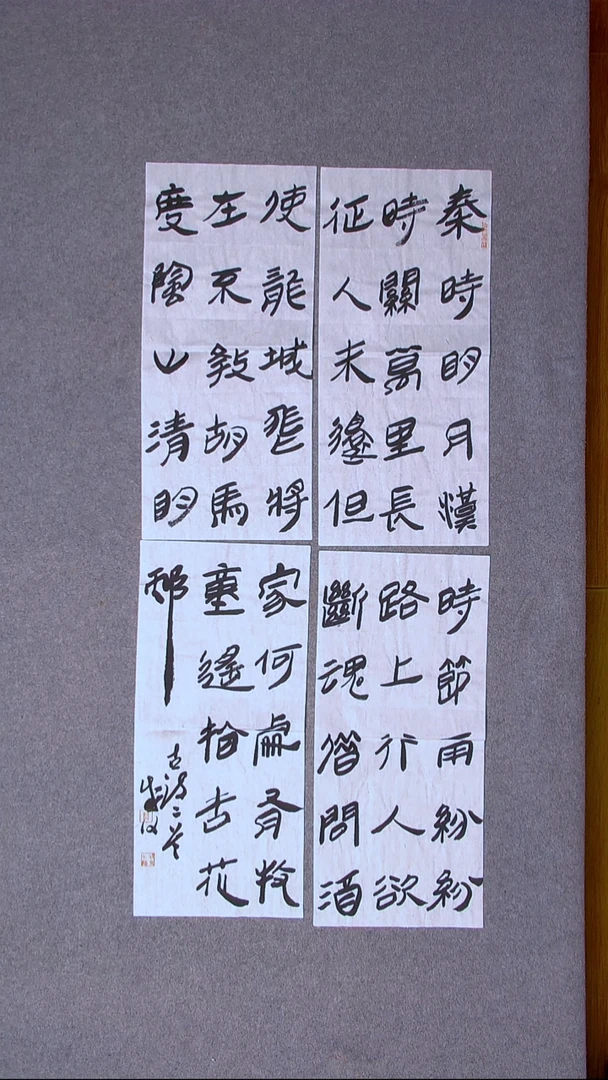 秦時眀月漢
時關萬里長
征人未還但
使龍城飛將
在不教胡馬
度陰山清眀
時節雨紛紛
路上行人欲
斷魂借問酒
家何處有牧
童遙指杏花
邨
古詩二首